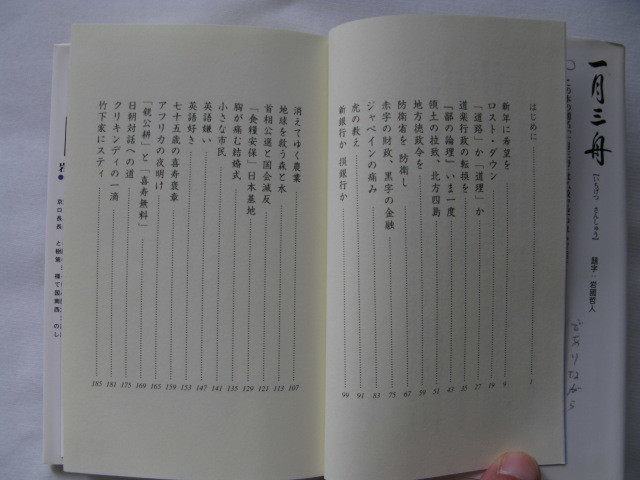 一月三舟
【いちげつ さんしゅう】
題字・岩國哲人
でありながら
はじめに 1
新年に希望を 9
ロスト・ダウン 19
「道路」か「道理」か 27
道楽行政の転換を 35
『鄙の論理』いま一度 31
領土の拉致、北方四島 41
地方德政令を 49
防衛省を 防衛し 67
赤字の財政、黒字の金融 75
ジャペインの痛み 83
虎の教え 91
新銀行か 損銀行か 99
消えてゆく農業 107
地球を救う森と水 113
首相公選と国会減反 121
「食糧安保」日本基地 129
胸が痛む結婚式 135
小さな市民 141
英語嫌い 147
英語好き 153
七十五歳の喜寿褒章 159
アフリカの夜明け 165
「親公耕」と「喜寿無料」 169
日朝対話への道 175
クリキンディの一滴 181
竹下家にスティ 185